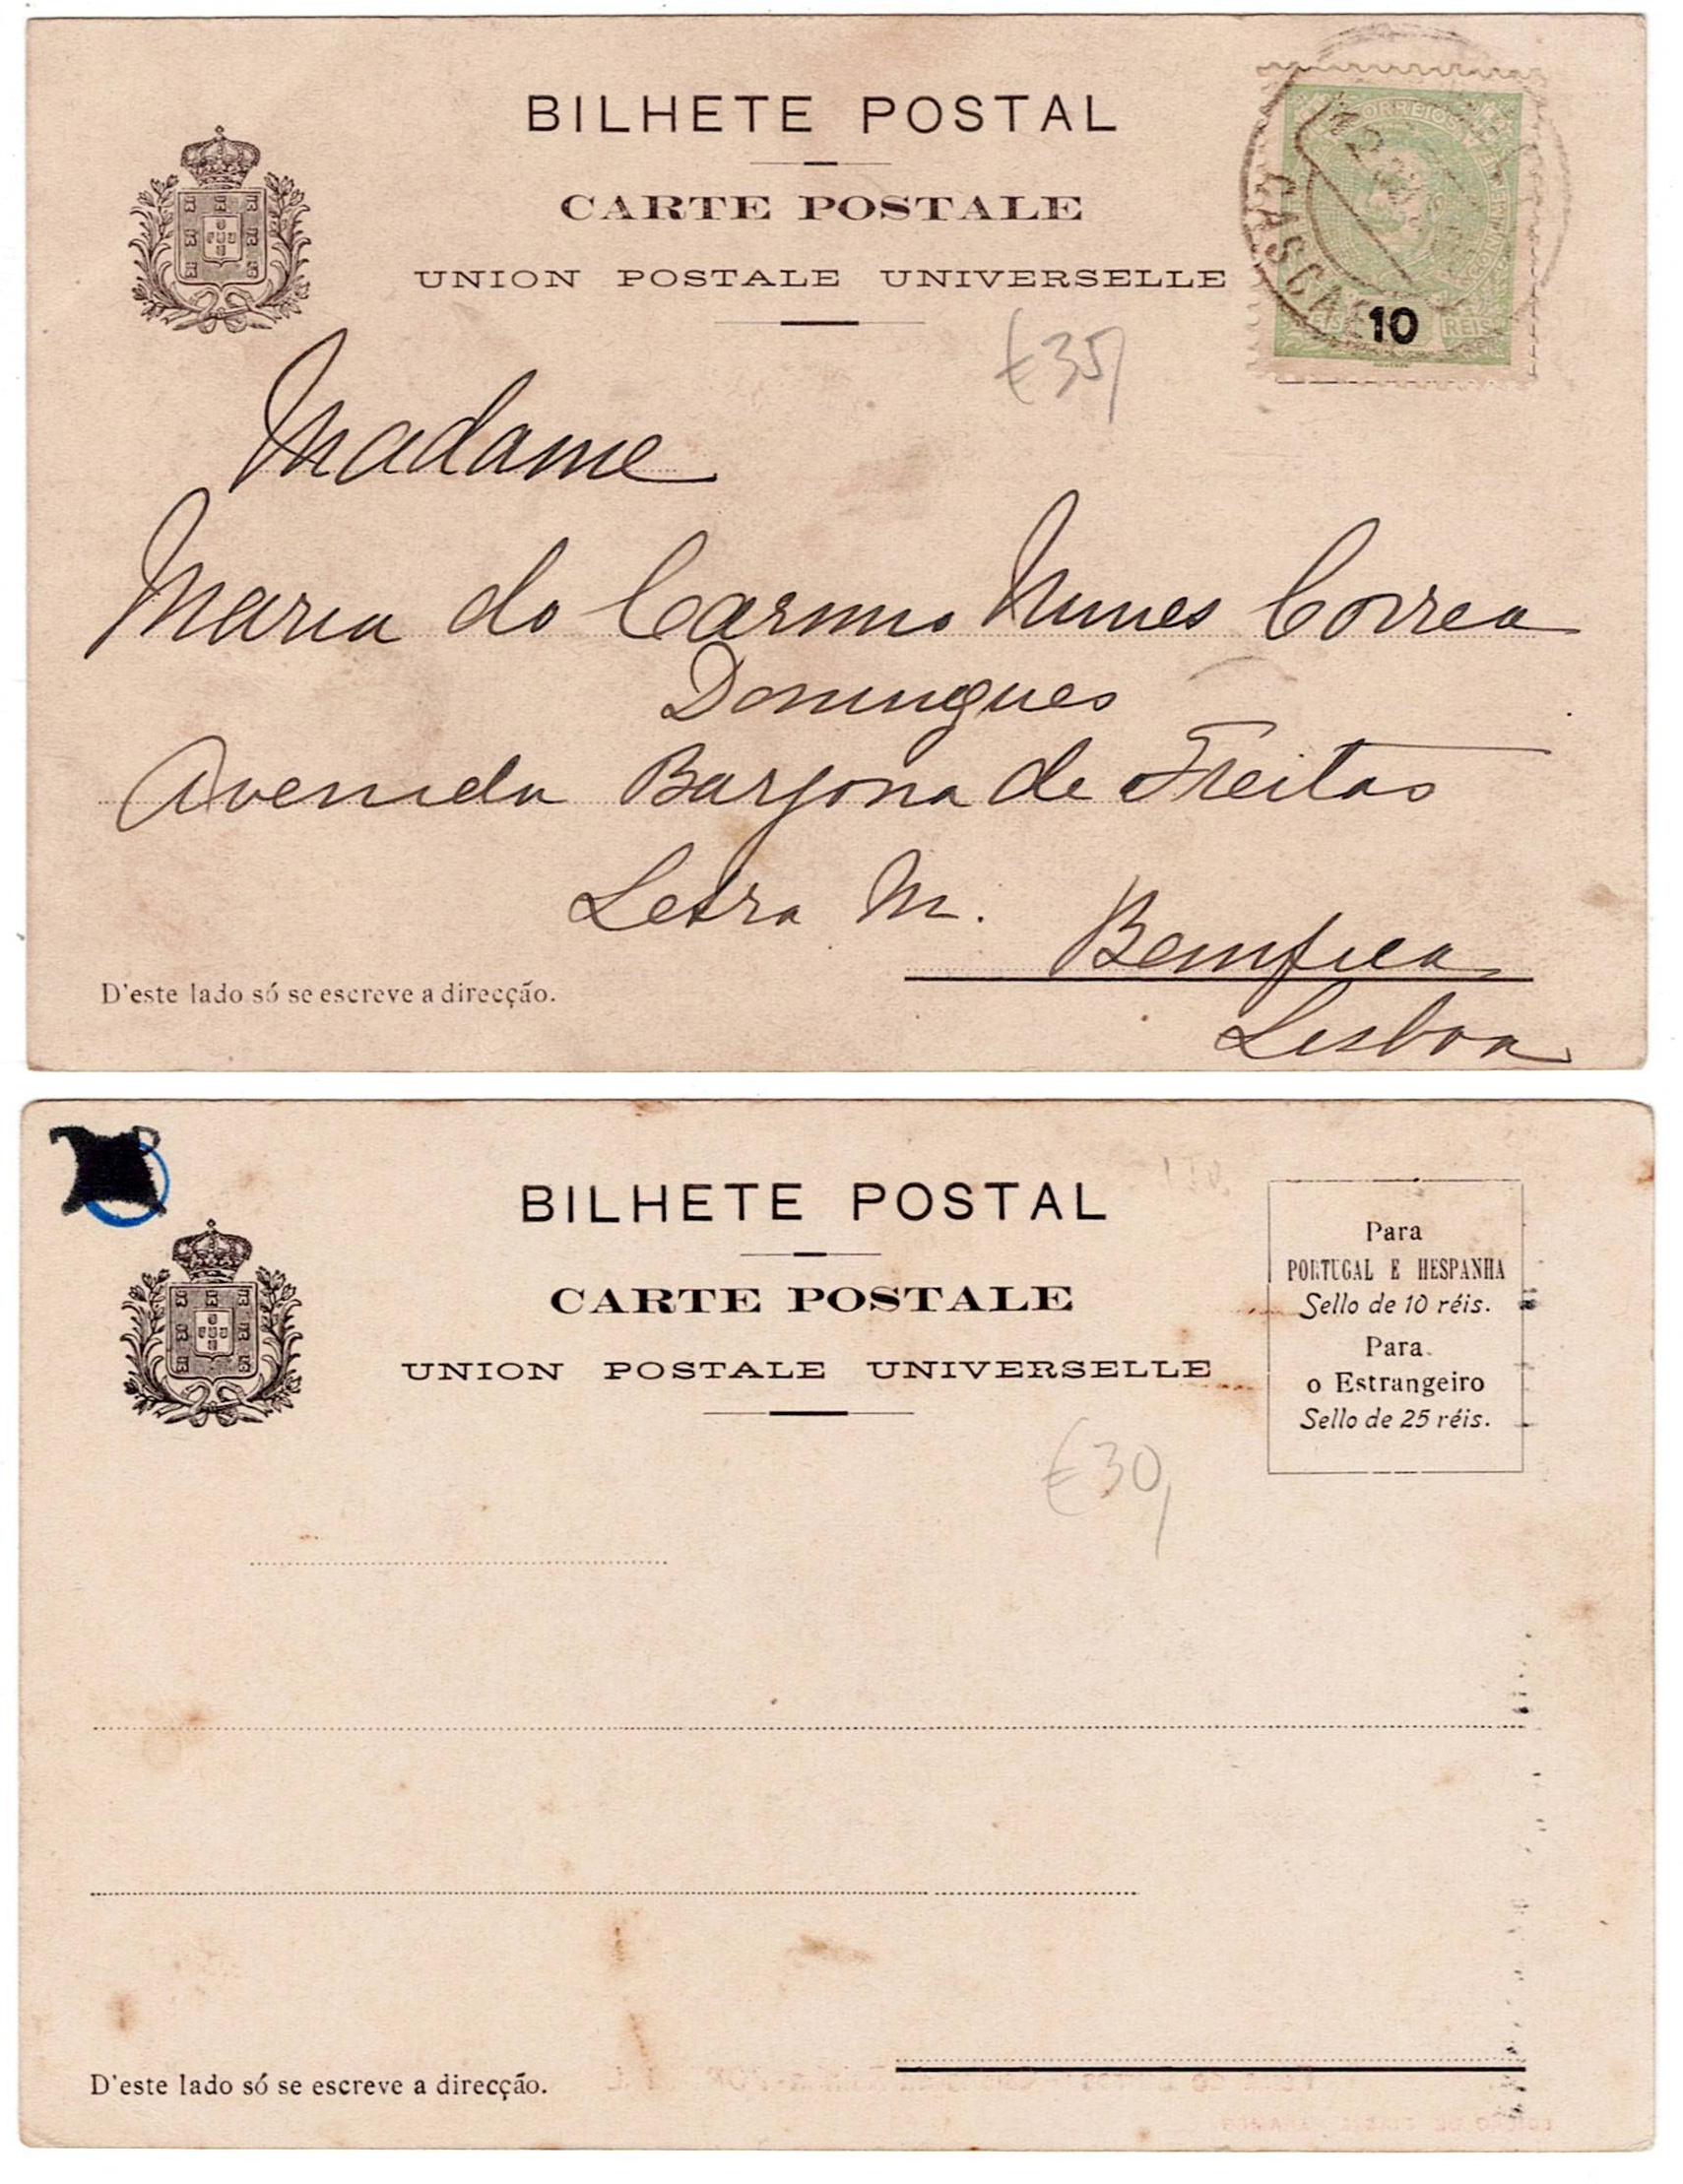 BILHETE POSTAL
CARTE POSTALE
UNION POSTALE UNIVERSELLE
CORREIOS
CASCAES
10
REIS
€35,
Madame
Maria do Carmo Nunes Correa
Domingues
Avenida Barjona de Freitas
Letra M.
Bemfica
Lisboa
D'este lado só se escreve a direcção.
BILHETE POSTAL
CARTE POSTALE
UNION POSTALE UNIVERSELLE
Para
PORTUGAL E HESPANHA
Sello de 10 réis.
Para
o Estrangeiro
Sello de 25 réis.
€30,
D'este lado só se escreve a direcção.